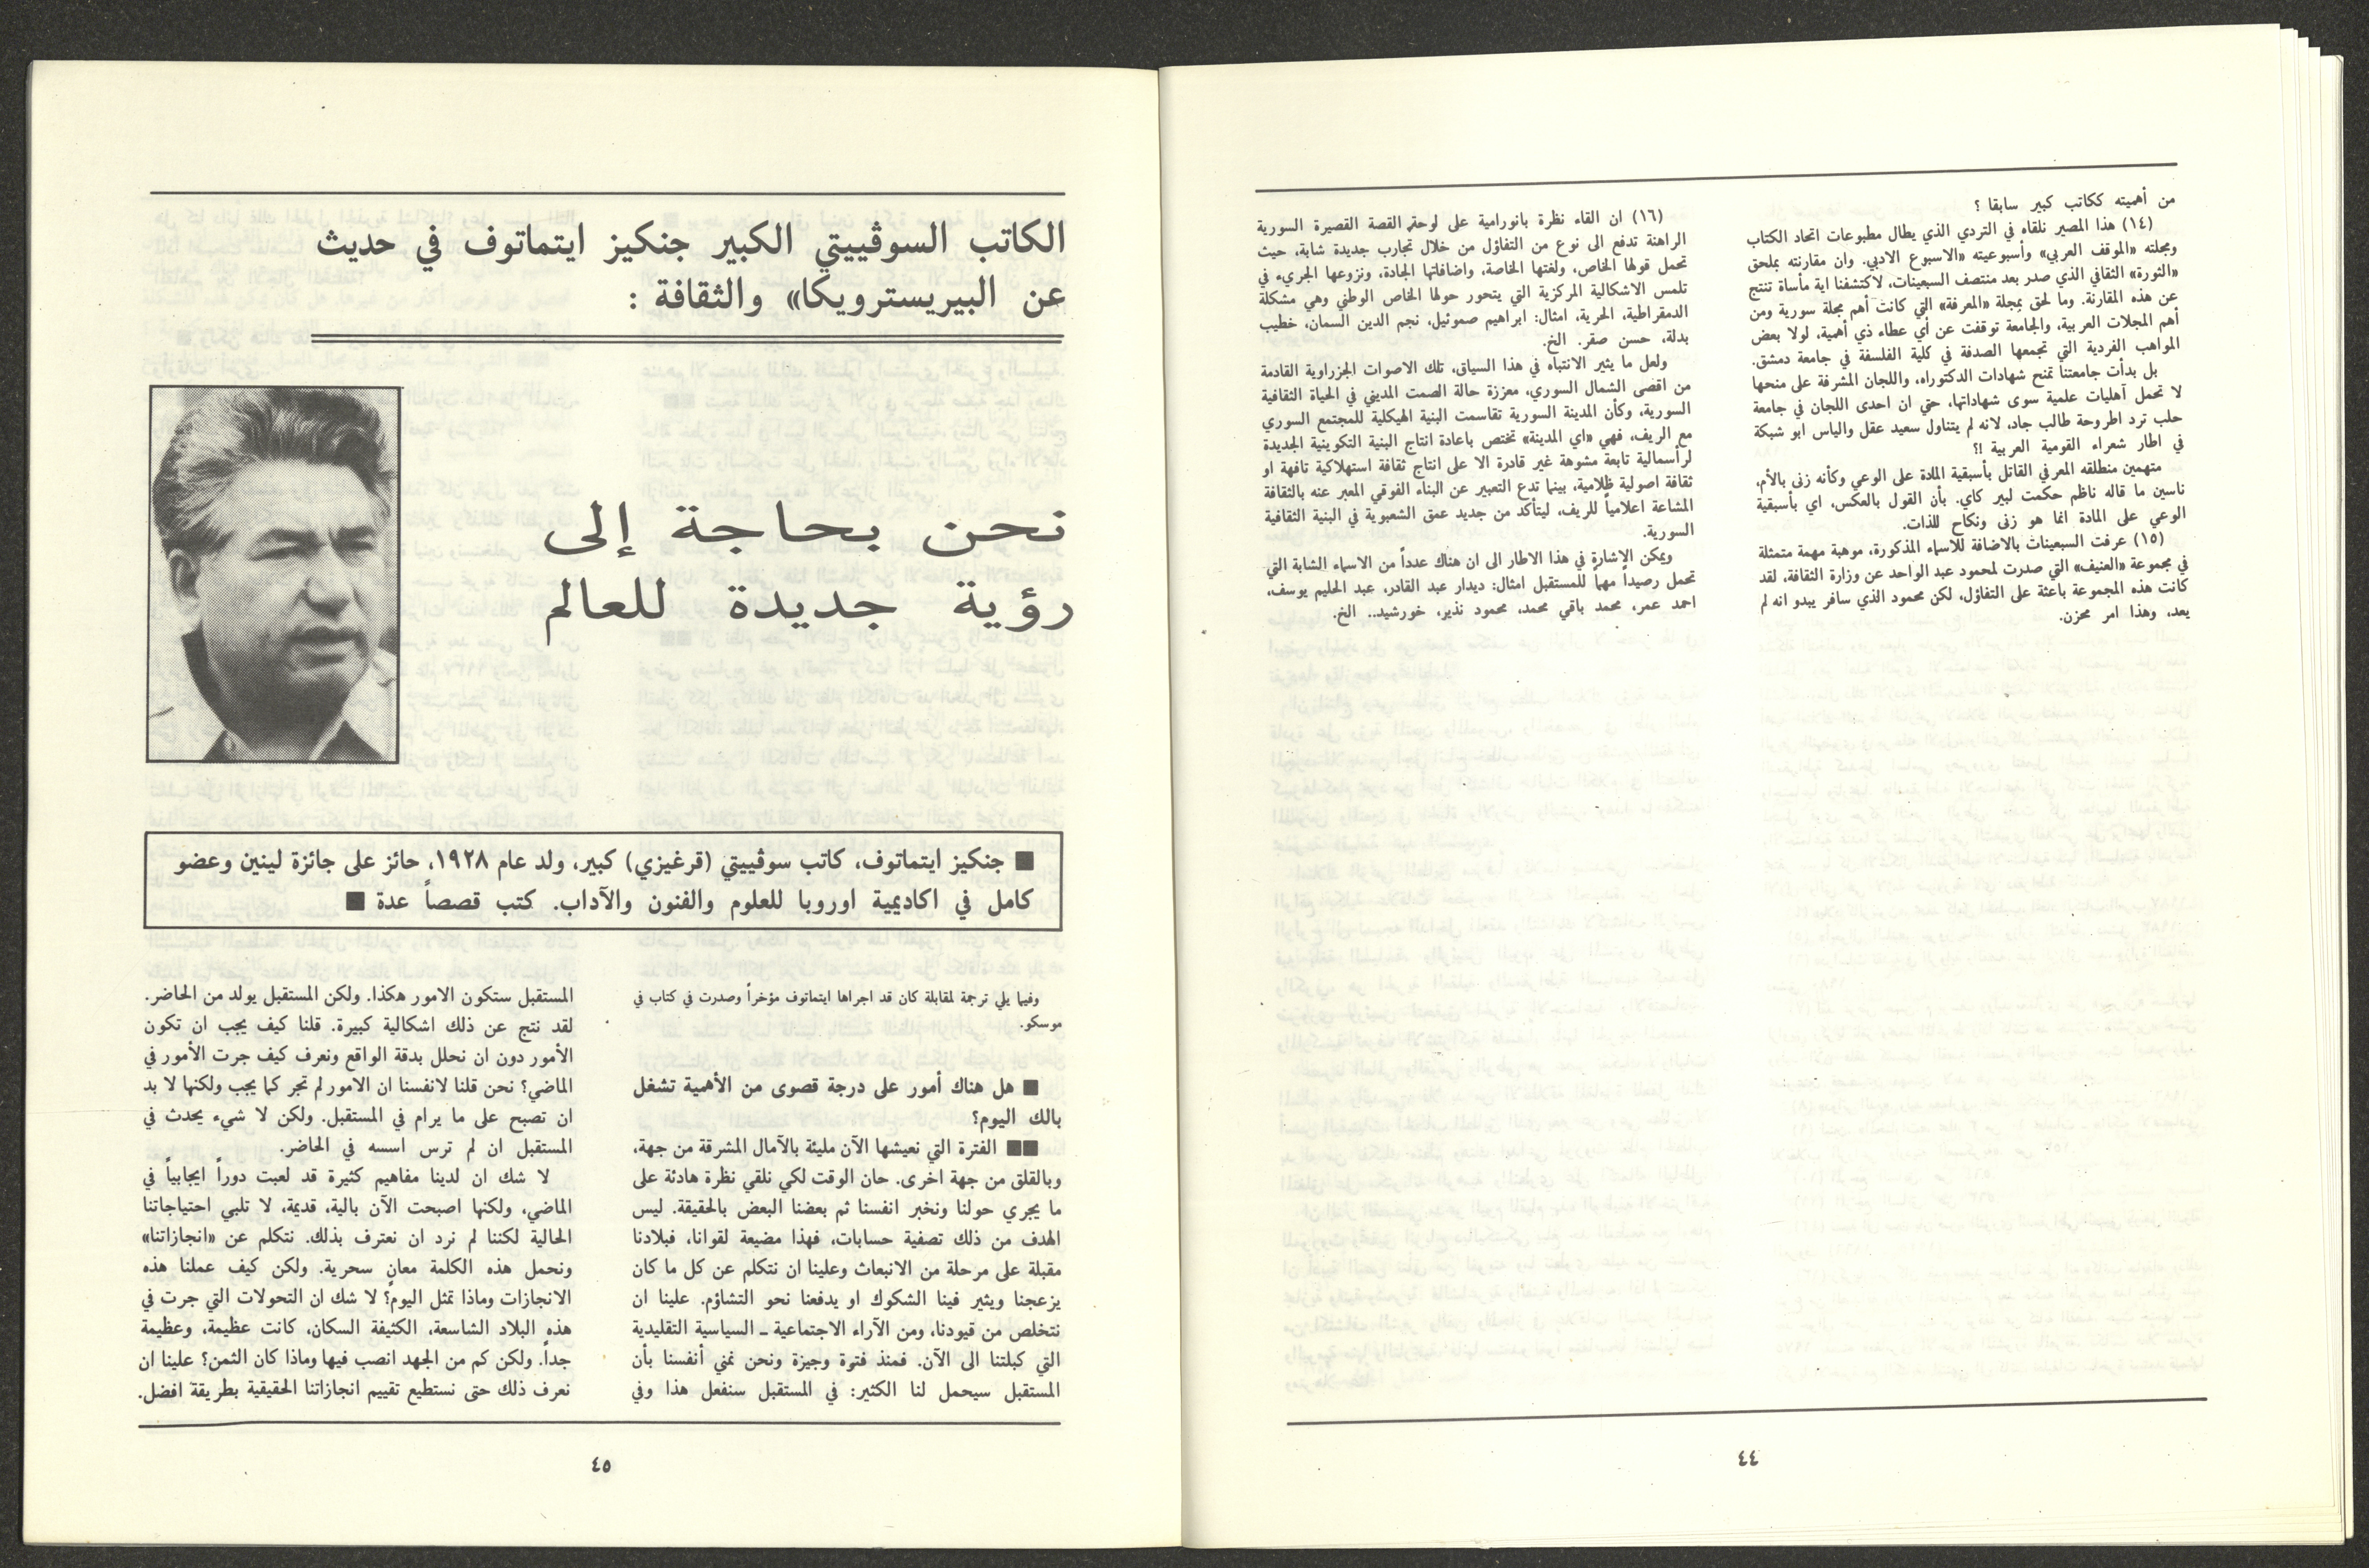 من أهميته ككاتب كبير سابقا ؟
(١٤) هذا المصير نلقاه في التردي الذي يطال مطبوعات اتحاد الكتاب
ومجلته «الموقف العربي» وأسبوعيته «الاسبوع الادبي. وان مقارنته بملحق
«الثورة» الثقافي الذي صدر بعد منتصف السبعينات، لاكتشفنا اية مأساة تنتج
عن هذه المقارنة. وما لحق بمجلة «المعرفة» التي كانت أهم مجلة سورية ومن
أهم المجلات العربية، والجامعة توقفت عن أي عطاء ذي أهمية، لولا بعض
المواهب الفردية التي تجمعها الصدفة في كلية الفلسفة في جامعة دمشق.
بل بدأت جامعتنا تمنح شهادات الدكتوراه، واللجان المشرفة على منحها
لا تحمل آهليات علمية سوى شهاداتها، حتي ان احدى اللجان في جامعة
حلب ترد اطروحة طالب جاد، لانه لم يتناول سعيد عقل والياس ابو شبكة
في اطار شعراء القومية العربية !؟
متهمين منطلقه المعرفي القائل بأسبقية المادة على الوعي وكأنه زنى بالأم،
ناسين ما قاله ناظم حكمت لبير كاي. بأن القول بالعكس، اي بأسبقية
الوعي على المادة انما هو زنى ونكاح للذات.
(١٥) عرفت السبعينات بالاضافة للأسماء المذكورة، موهبة مهمة متمثلة
في مجموعة «العنيف» التي صدرت لمحمود عبد الواحد عن وزارة الثقافة، لقد
كانت هذه المجموعة باعثة على التفاؤل، لكن محمود الذي سافر يبدو انه لم
يعد، وهذا امر محزن.
(١٦) ان القاء نظرة بانورامية على لوحة القصة القصيرة السورية
الراهنة تدفع الى نوع من التفاؤل من خلال تجارب جديدة شابة، حيث
تحمل قولها الخاص، ولغتها الخاصة، واضافاتها الجادة، ونزوعها الجريء في
تلمس الاشكالية المركزية التي يتحور حولها الخاص الوطني وهي مشكلة
الدمقراطية، الحرية، امثال: ابراهيم صموئيل، نجم الدين السمان، خطيب
بدلة، حسن صقر. الخ.
ولعل ما يثير الانتباه في هذا السياق، تلك الاصوات الجزراوية القادمة
من اقصى الشمال السوري، معززة حالة الصمت المديني في الحياة الثقافية
السورية، وكأن المدينة السورية تقاسمت البنية الهيكلية للمجتمع السوري
مع الريف، فهي «اي المدينة» تختص باعادة انتاج البنية التكوينية الجديدة
لرأسمالية تابعة مشوهة غير قادرة الا على انتاج ثقافة استهلاكية تافهة او
ثقافة اصولية ظلامية، بينما تدع التعبير عن البناء الفوقي المعبر عنه بالثقافة
المشاعة اعلامياً للريف، ليتأكد من جديد عمق الشعبوية في البنية الثقافية
السورية.
ويمكن الاشارة في هذا الاطار الى ان هناك عدداً من الاسماء الشابة التي
تحمل رصيداً مهماً للمستقبل امثال: ديدار عبد القادر، عبد الحليم يوسف،
احمد عمر، محمد باقي محمد، محمود نذير، خورشيد.. الخ.
٤٤
الكاتب السوڤييتي الكبير جنكيز ايتماتوف في حديث
عن البيريسترويكا» والثقافة :
نحن بحاجة إلى
رؤية جديدة للعالم
■ جنكيز ايتماتوف، كاتب سوڤييتي (قرغيزي) كبير، ولد عام ١٩٢٨، حائز على جائزة لينين وعضو
كامل في اكاديمية اوروبا للعلوم والفنون والآداب. كتب قصصاً عدة ■
وفيما يلي ترجمة لمقابلة كان قد اجراها ايتماتوف مؤخراً وصدرت في كتاب في
موسكو.
■ هل هناك أمور على درجة قصوى من الأهمية تشغل
بالك اليوم؟
■■ الفترة التي نعيشها الآن مليئة بالآمال المشرقة من جهة،
وبالقلق من جهة اخرى. حان الوقت لكي نلقي نظرة هادئة على
ما يجري حولنا ونخبر انفسنا ثم بعضنا البعض بالحقيقة. ليس
الهدف من ذلك تصفية حسابات، فهذا مضيعة لقوانا، فبلادنا
مقبلة على مرحلة من الانبعاث وعلينا ان نتكلم عن كل ما كان
يزعجنا ويثير فينا الشكوك او يدفعنا نحو التشاؤم. علينا ان
نتخلص من قيودنا، ومن الآراء الاجتماعية ـ السياسية التقليدية
التي كبلتنا الى الآن. فمنذ فتوة وجيزة ونحن نمني أنفسنا بأن
المستقبل سيحمل لنا الكثير: في المستقبل سنفعل هذا وفي
المستقبل ستكون الامور هكذا. ولكن المستقبل يولد من الحاضر.
لقد نتج عن ذلك اشكالية كبيرة. قلنا كيف يجب ان تكون
الأمور دون ان نحلل بدقة الواقع ونعرف كيف جرت الأمور في
الماضي؟ نحن قلنا لانفسنا ان الامور لم تجر كما يجب ولكنها لا بد
ان تصبح على ما يرام في المستقبل. ولكن لا شيء يحدث في
المستقبل ان لم ترس اسسه في الحاضر.
لا شك ان لدينا مفاهيم كثيرة قد لعبت دوراً ايجابياً في
الماضي، ولكنها اصبحت الآن بالية، قديمة، لا تلبي احتياجاتنا
الحالية لكننا لم نرد ان نعترف بذلك. نتكلم عن «انجازاتنا»
ونحمل هذه الكلمة معانٍ سحرية. ولكن كيف عملنا هذه
الانجازات وماذا تمثل اليوم؟ لا شك ان التحولات التي جرت في
هذه البلاد الشاسعة، الكثيفة السكان، كانت عظيمة، وعظيمة
جداً. ولكن كم من الجهد انصب فيها وماذا كان الثمن؟ علينا ان
نعرف ذلك حتى نستطيع تقييم انجازاتنا الحقيقية بطريقة افضل.
٤٥